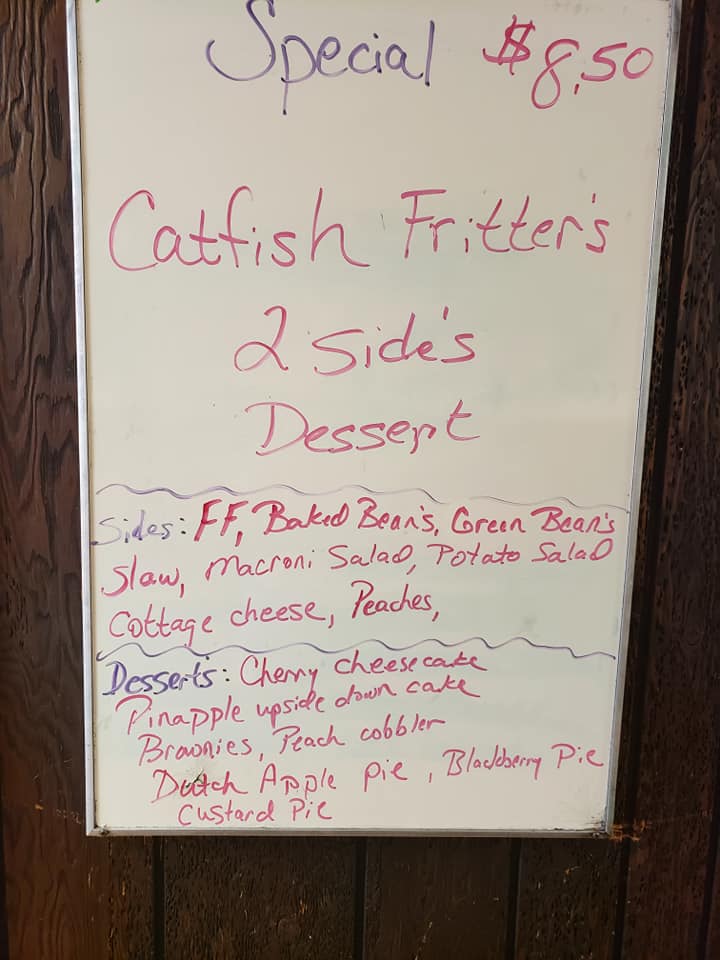 Special $8.50
Catfish Fritter's
2 side's
Dessert
Sides: FF, Baked Bean's, Green Bean's
Slaw, Macroni Salad, Potato Salad
Cottage cheese, Peaches,
Desserts: Cherry cheesecake
Pinapple upside down cake
Brownies, Peach cobbler
Dutch Apple pie, Blackberry Pie
Custard Pie